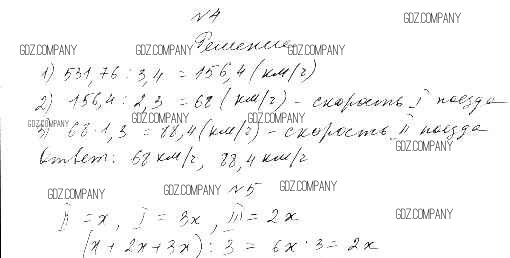 №4
GDZ.COMPANY
Решение
GDZ.COMPANY GDZ.COMPANY GDZ.COMPANY
1) 531,76 : 3,4 = 156,4 (км/г)
2) 156,4 : 2,3 = 68 (км/г) - скорость I поезда
GDZ.COMPANY GDZ.COMPANY GDZ.COMPANY GDZ.COMPANY
3) 68·1,3 = 88,4 (км/г) - скорость II поезда
Ответ: 68 км/г, 88,4 км/г
GDZ.COMPANY
№5
GDZ.COMPANY GDZ.COMPANY GDZ.COMPANY
II = x, I = 3x, III = 2x
GDZ.COMPANY
(x + 2x + 3x) : 3 = 6x : 3 = 2x